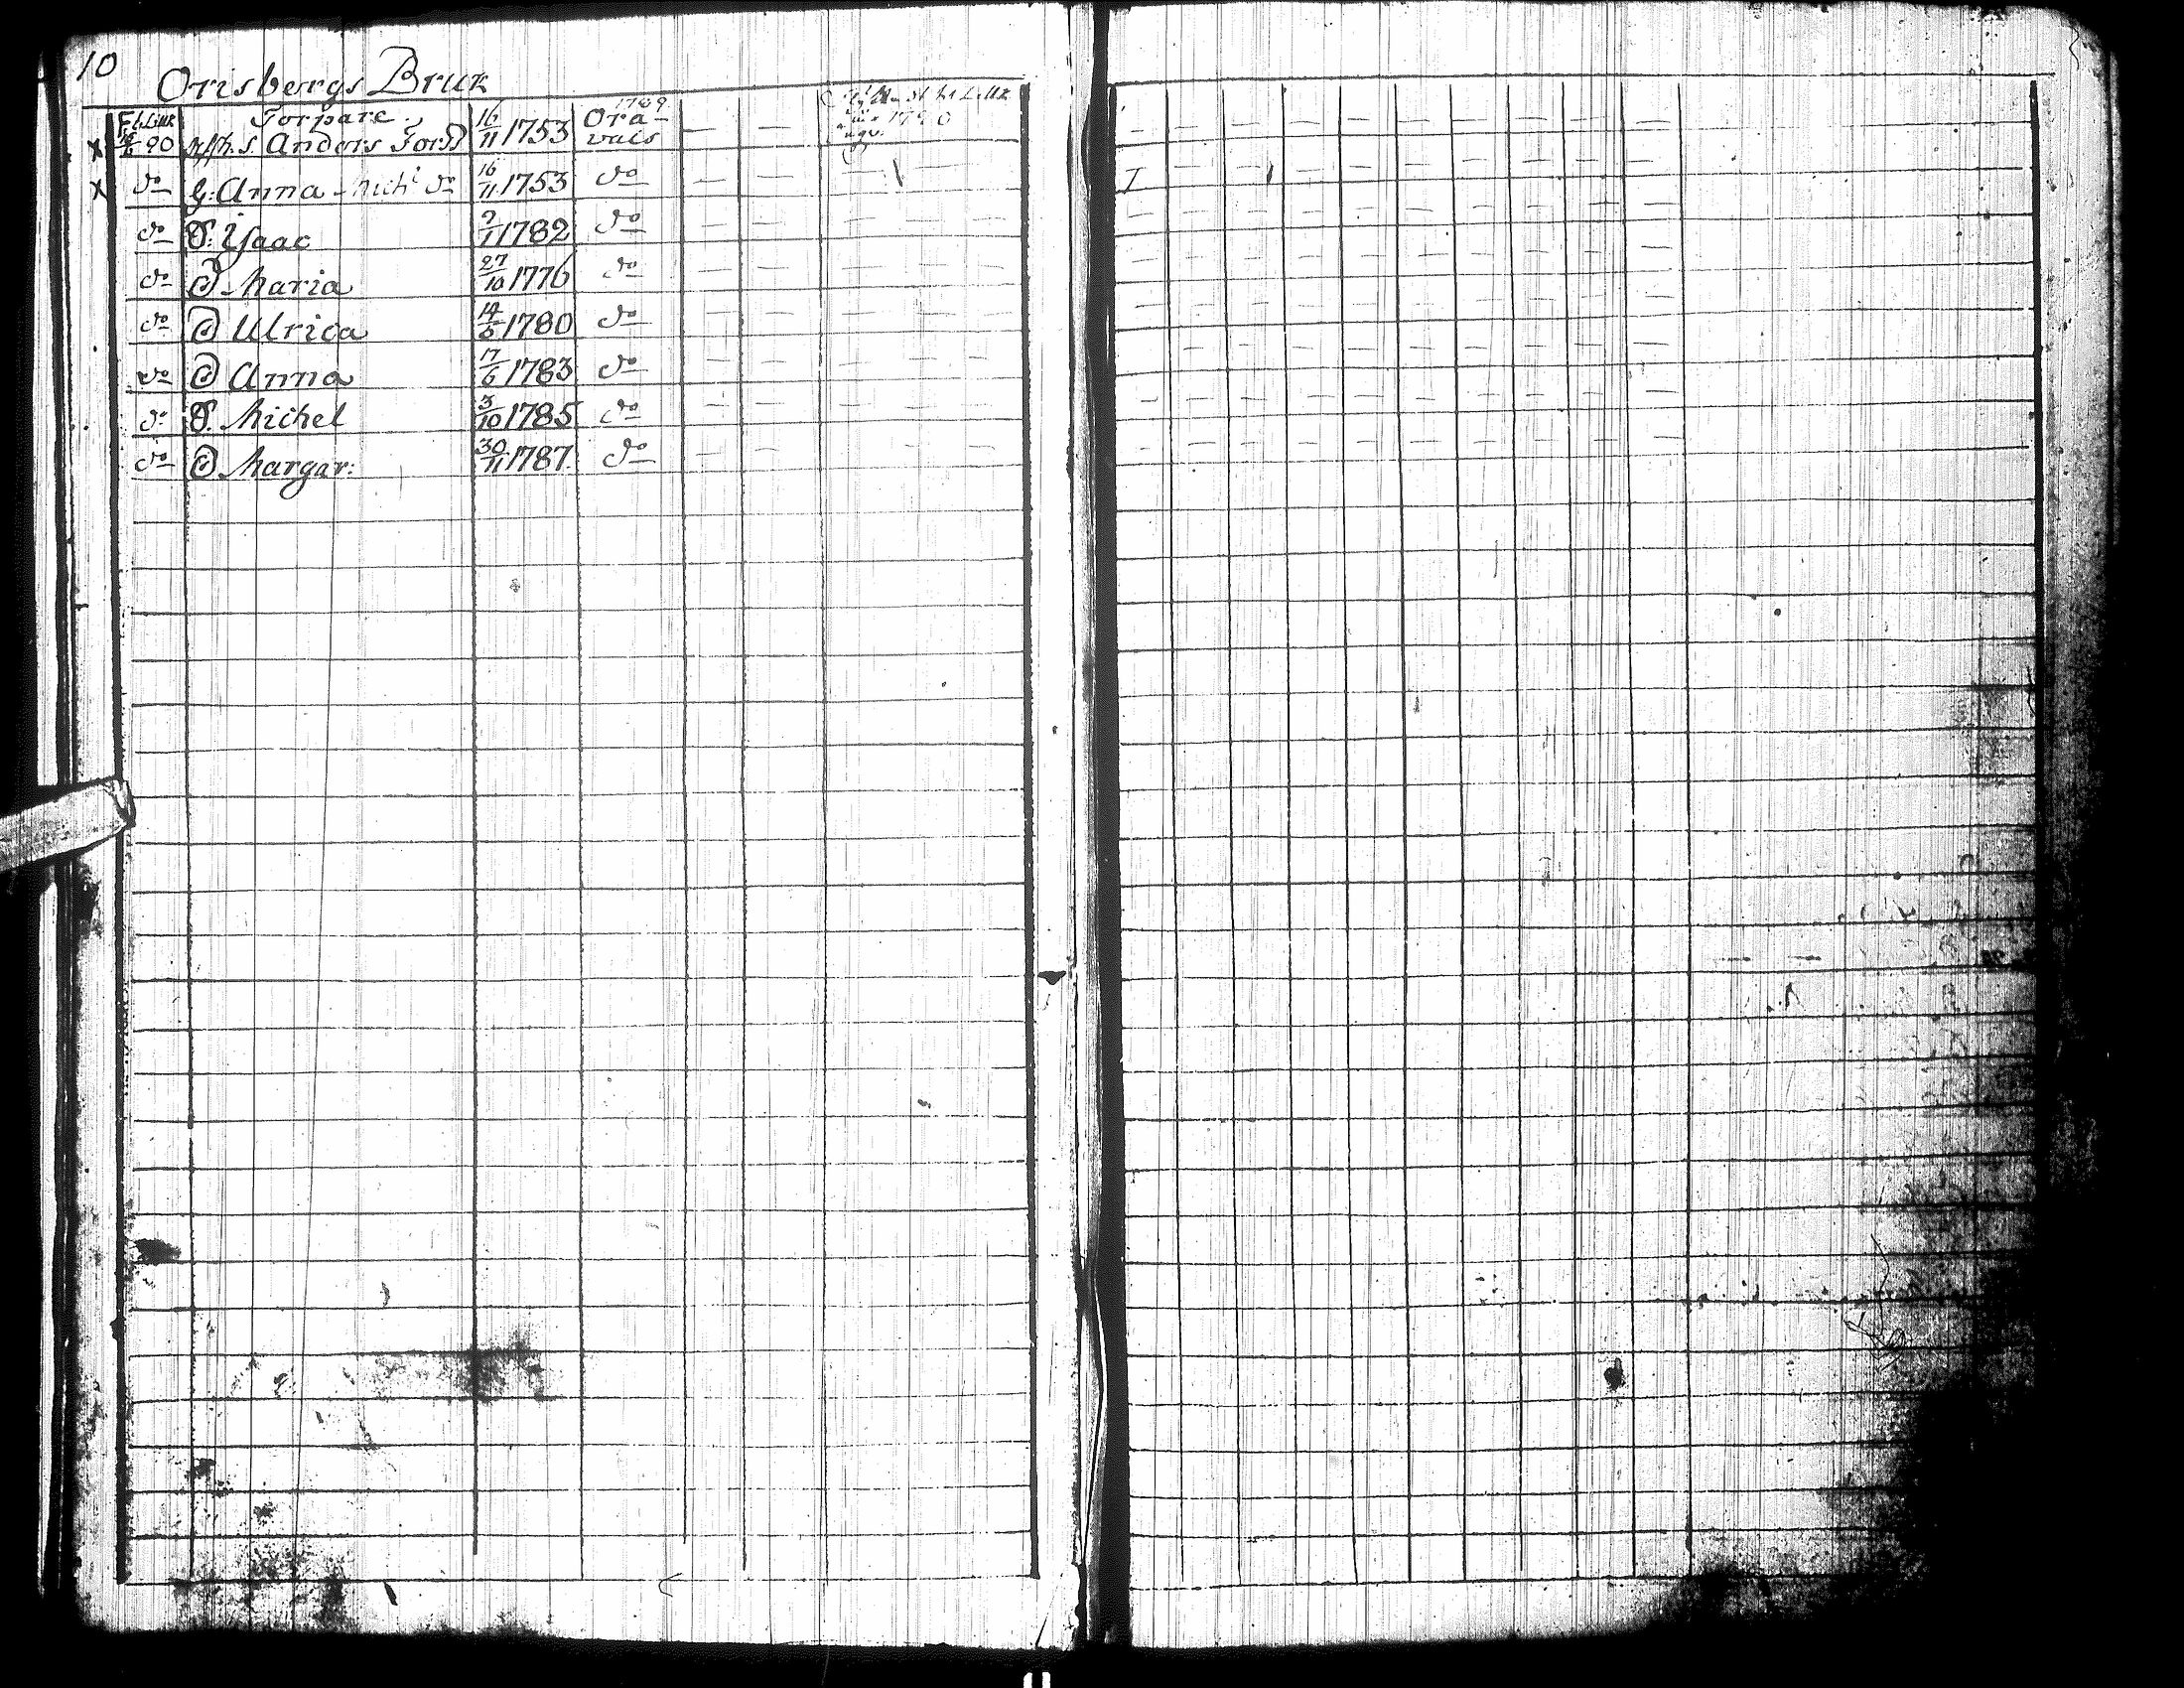 10
Orisbergs Bruk
Torpare
20 Anders Forss 16/11 1753 1789 Oravais
do G: Anna Mich: do 16/11 1753 do
do S: Isaac 9/1 1782 do
do D Maria 27/10 1776 do
do D Ulrica 14/5 1780 do
do D Anna 17/6 1783 do
do S. Michel 3/10 1785 do
do D Margar: 30/11 1787 do